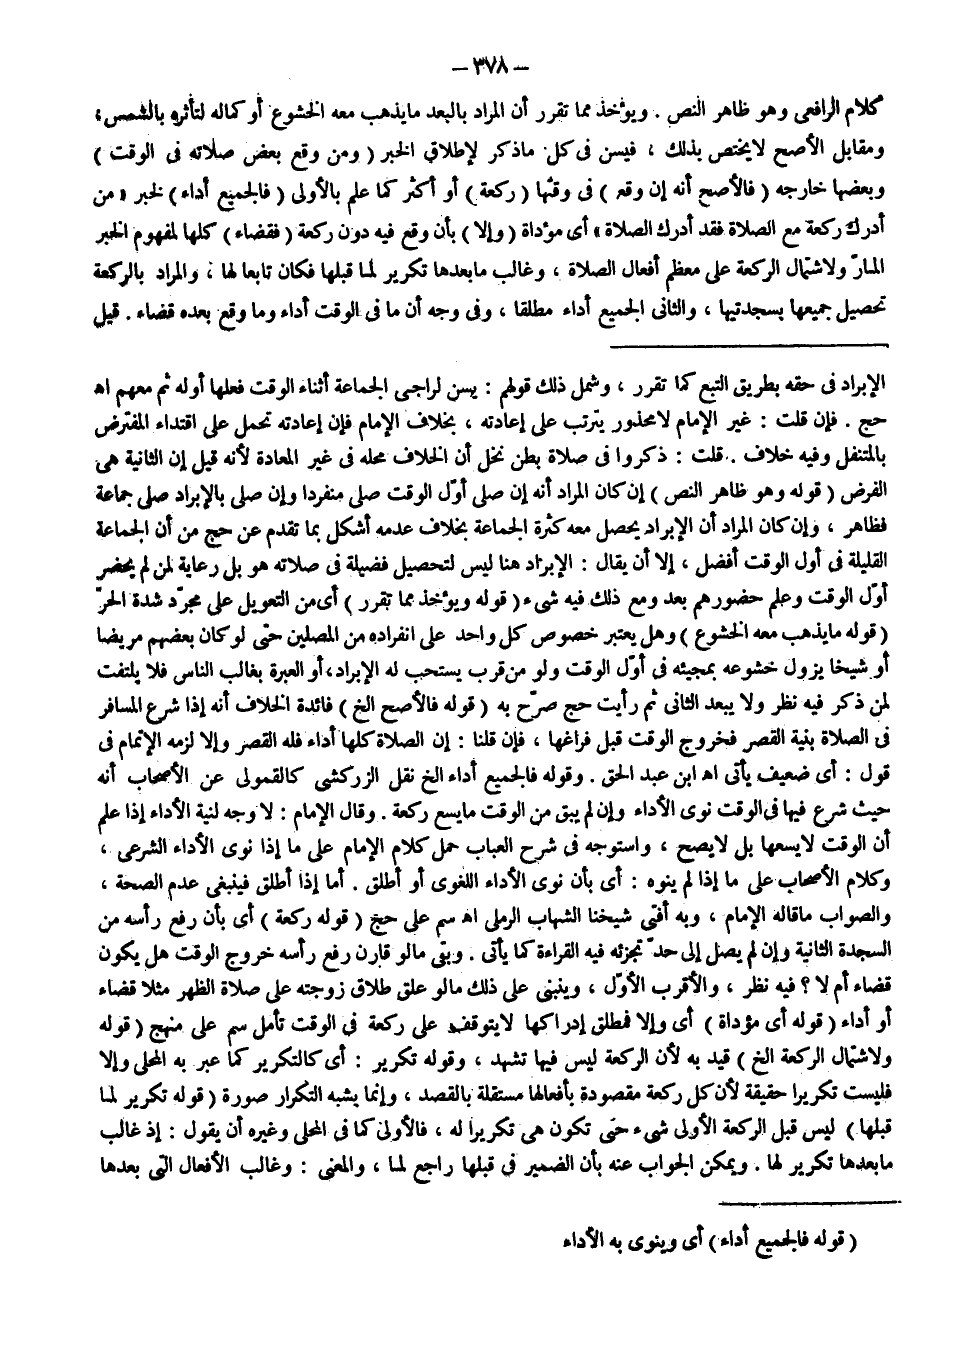 – ٣٧٨ –
كلام الرافعى وهو ظاهر النص . ويؤخذ مما تقرر أن المراد بالبعد مايذهب معه الخشوع أو كماله لتأثره بالشمس ؛
ومقابل الأصح لايختص بذلك ، فيسن فى كل ماذكر لإطلاق الخبر ( ومن وقع بعض صلاته فى الوقت )
وبعضها خارجه ( فالأصح أنه إن وقع ) فى وقتها ( ركعة ) أو أكثر كما علم بالأولى ( فالجميع أداء ) لخبر « من
أدرك ركعة مع الصلاة فقد أدرك الصلاة » أى مؤداة ( وإلا ) بأن وقع فيه دون ركعة ( فقضاء ) كلها لمفهوم الخبر
المارّ ولاشتمال الركعة على معظم أفعال الصلاة ، وغالب مابعدها تكرير لما قبلها فكان تابعا لها ؛ والمراد بالركعة
تحصيل جميعها بسجدتيها ، والثانى الجميع أداء مطلقا ، وفى وجه أن ما فى الوقت أداء وما وقع بعده قضاء . قيل
الإبراد فى حقه بطريق التبع كما تقرر ، وشمل ذلك قولهم : يسن لراجى الجماعة أثناء الوقت فعلها أوله ثم معهم اه
حج . فإن قلت : غير الإمام لامحذور يترتب على إعادته ، بخلاف الإمام فإن إعادته تحمل على اقتداء المفترض
بالمتنفل وفيه خلاف . قلت : ذكروا فى صلاة بطن نخل أن الخلاف محله فى غير المعادة لأنه قيل إن الثانية هى
الفرض ( قوله وهو ظاهر النص ) إن كان المراد أنه إن صلى أوّل الوقت صلى منفردا وإن صلى بالإبراد صلى جماعة
فظاهر ، وإن كان المراد أن الإبراد يحصل معه كثرة الجماعة بخلاف عدمه أشكل بما تقدم عن حج من أن الجماعة
القليلة فى أول الوقت أفضل ، إلا أن يقال : الإبراد هنا ليس لتحصيل فضيلة فى صلاته هو بل رعاية لمن لم يحضر
أوّل الوقت وعلم حضورهم بعد ومع ذلك فيه شىء ( قوله ويؤخذ مما تقرر ) أى من التعويل على مجرّد شدة الحرّ
( قوله مايذهب معه الخشوع ) وهل يعتبر خصوص كل واحد على انفراده من المصلين حتى لو كان بعضهم مريضا
أو شيخا يزول خشوعه بمجيئه فى أوّل الوقت ولو من قرب يستحب له الإبراد ، أو العبرة بغالب الناس فلا يلتفت
لمن ذكر فيه نظر ولا يبعد الثانى ثم رأيت حج صرّح به ( قوله فالأصح الخ ) فائدة الخلاف أنه إذا شرع المسافر
فى الصلاة بنية القصر فخروج الوقت قبل فراغها ، فإن قلنا : إن الصلاة كلها أداء فله القصر وإلا لزمه الإتمام فى
قول : أى ضعيف يأتى اه ابن عبد الحق . وقوله فالجميع أداء الخ نقل الزركشى كالقمولى عن الأصحاب أنه
حيث شرع فيها فى الوقت نوى الأداء وإن لم يبق من الوقت مايسع ركعة . وقال الإمام : لا وجه لنية الأداء إذا علم
أن الوقت لايسعها بل لايصح ، واستوجه فى شرح العباب حمل كلام الإمام على ما إذا نوى الأداء الشرعى ،
وكلام الأصحاب على ما إذا لم ينوه : أى بأن نوى الأداء اللغوى أو أطلق . أما إذا أطلق فينبغى عدم الصحة ،
والصواب ماقاله الإمام ، وبه أفتى شيخنا الشهاب الرملى اه سم على حج ( قوله ركعة ) أى بأن رفع رأسه من
السجدة الثانية وإن لم يصل إلى حدّ تجزئه فيه القراءة كما يأتى . وبقى مالو قارن رفع رأسه خروج الوقت هل يكون
قضاء أم لا ؟ فيه نظر ، والأقرب الأوّل ، وينبنى على ذلك مالو علق طلاق زوجته على صلاة الظهر مثلا قضاء
أو أداء ( قوله أى مؤداة ) أى وإلا فمطلق إدراكها لايتوقف على ركعة فى الوقت تأمل سم على منهج ( قوله
ولاشتمال الركعة الخ ) قيد به لأن الركعة ليس فيها تشهد ، وقوله تكرير : أى كالتكرير كما عبر به المحلى وإلا
فليست تكريرا حقيقة لأن كل ركعة مقصودة بأفعالها مستقلة بالقصد ، وإنما يشبه التكرار صورة ( قوله تكرير لما
قبلها ) ليس قبل الركعة الأولى شىء حتى تكون هى تكريرا له ، فالأولى كما فى المحلى وغيره أن يقول : إذ غالب
مابعدها تكرير لها . ويمكن الجواب عنه بأن الضمير فى قبلها راجع لما ، والمعنى : وغالب الأفعال التى بعدها
( قوله فالجميع أداء ) أى وينوى به الأداء